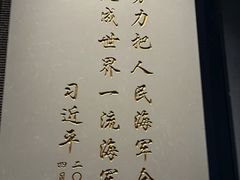 努力把人民海军全
成世界一流海军
习近平
二〇
四月